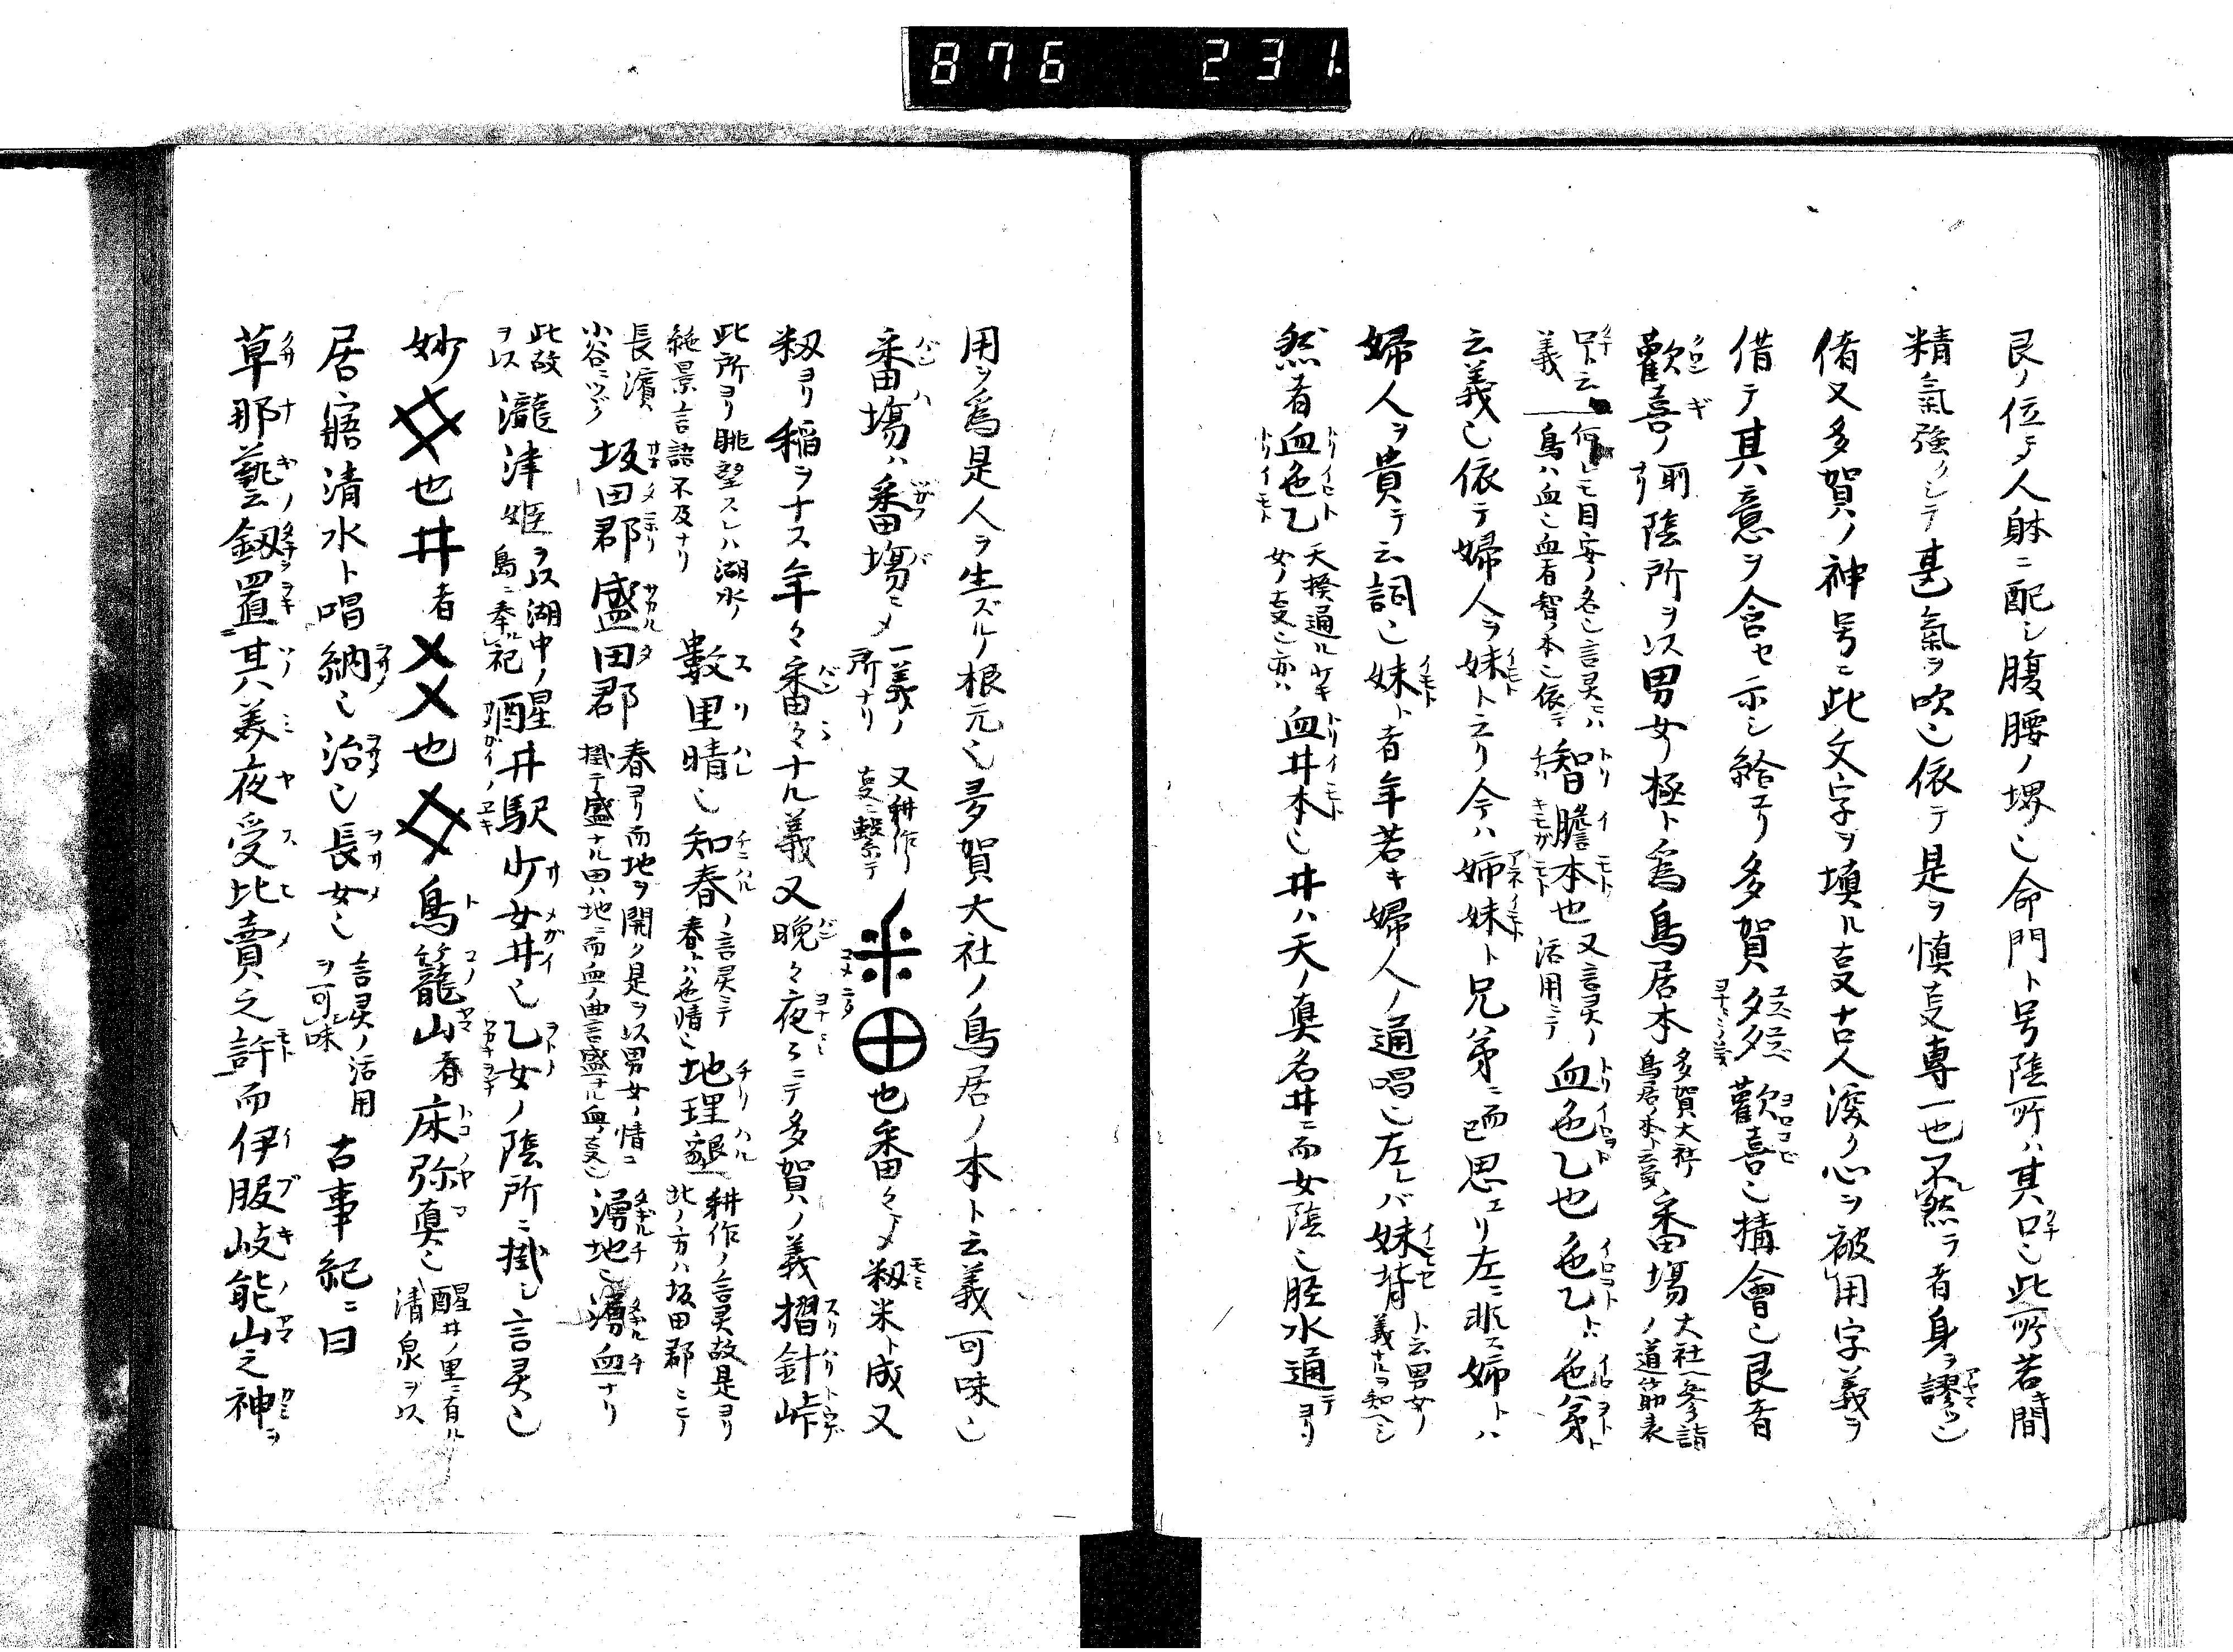 876 231.
艮ノ位ヲ人躰ニ配シ腹腰ノ堺也命門ト号陰所ハ其口也此所若キ間
精氣強クシテ甚氣ヲ吹也依テ是ヲ慎支専一也不然ラ者身ヲ謬也
偖又多賀ノ神号ニ此文字ヲ填ル支古人深ク心ヲ被用字義ヲ
借テ其意ヲ含セ示シ給エリ多賀夕夕歡喜也搆會也艮者
歡喜ノ陰所ヲ以男女ノ極ト爲鳥居本多賀大社鳥居ノ本ト云支番場大社ヘ参詣ノ道筋表
義鳥ハ血也血者智ノ本也依テ智膽本也又言灵ノ活用ニテ血色乙也色乙ハ色弟
云義也依テ婦人ヲ妹ト云リ今ハ姉妹ト兄弟ニ而已思エリ左ニ非ス姉トハ
婦人ヲ貴テ云詞也妹ト者年若キ婦人ノ通唱也左レバ妹背ト云男女ノ義ナルヲ知ヘシ
然者血色乙女ノ支也亦ハ血井本也井ハ天ノ真名井ニ而女陰也胵水通テヨリ
用ヲ爲是人ヲ生ズル根元也多賀大社ノ鳥居ノ本ト云義可味也
番場ハ番場ニメ一義ノ所ナリ又耕作ノ支ニ繋テ米田也番々メ籾米ト成又
籾ヨリ稲ヲナス年々番々ナル義又晩々夜々ニテ多賀ノ義摺針峠
此所ヨリ眺望スレハ湖水ノ絶景言語不及ナリ數里晴也知春ノ言灵ニテ春ハ色情也地理墾耕作ノ言灵故是ヨリ北ノ方ハ坂田郡ニテ
長濱小谷ニツヾク坂田郡盛田郡春ヨリ而地ヲ開ク是ヲ以男女ノ情ニ掛テ盛ナル田ハ地ニ而血ノ曲言盛ナル血ノ支也湧地也湧血ナリ
此故ヲ以瀧津姫ヲ以湖中ノ島ニ奉ル祀醒井駅少女井也乙女ノ陰所ニ掛シ言灵也
妙井也井者㐅㐅也井メ鳥籠山者床弥真也醒井ノ里ニ有ル清泉ヲ以
居寤清水ト唱納也治也長女也言灵ノ活用ヲ可味古事紀ニ曰
草那藝釼置其美夜受比賣之許而伊服岐能山之神ヲ